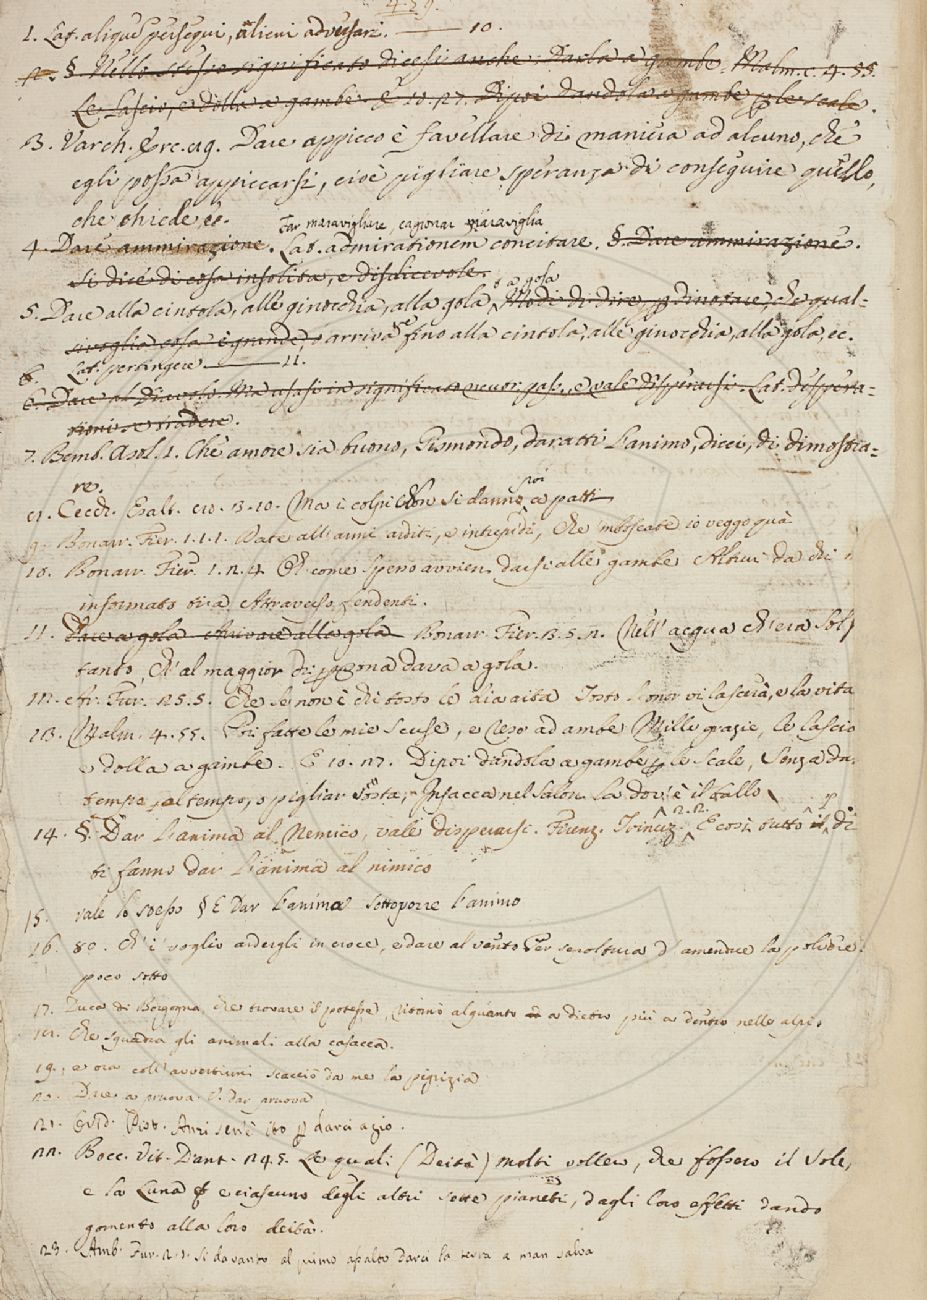 429.
1. Lat. aliquẽ persequi, alicui adversari. —— 10.
2. § Nello stesso significato dicesi anche: Darla a gambe. Malm. c. 4. 55.
Le lascio, e dolla a gambe. E 10. 27. Dipoi dandola a gambe p le scale.
3. Varch. Erc. 89. Dare appicco è favellare di maniera ad alcuno, che
egli possa appiccarsi, cioè pigliare speranza di conseguire quello,
che chiede, ec.
Far maravigliare, cagionar maraviglia
4. Dare ammirazione. Lat. admirationem concitare. §. Dare ammirazione.
si dice di cosa insolita, e disdicevole.
o a gola
5. Dare alla cintola, alle ginocchia, alla gola, Modi di dire, p dinotare, che qual=
sivoglia cosa è grande, o arriva fino alla cintola, alle ginocchia, alla gola, ec.
Lat. pertingere —— 11.
6. Dare al Diavolo. Ma usasi in significato neutr. pass., e vale disperarsi. Lat. despera=
tioni se tradere.
7. Bemb. Asol. 1. Che amore sia buono, Gismondo, daratti l'animo, dicei, di dimostra=
re.
8. Cecch. Esalt. cr. 3. 10. Ma i colpi non si danno poi a patti
9. Bonarr. Fier. 1. 1. 1. Date all'armi arditi, e intrepidi, Che 'mboscate io veggo quà
10. Bonarr. Fier. 1. 2. 4. Ch come spesso avvien darsi alle gambe Altrui da chi
informato tira Attraverso fendenti.
11. Dare a gola Arrivare alla gola Bonarr. Fier. 3. 5. 2. Nell'acqua ch'era sol
tanto, Ch'al maggior di psona dava a gola.
12. Ar. Fur. 25. 5. Che se non è chi tosto le dia aita Tosto l'onor vi lascerà, e la vita
13. Malm. 4. 55. Poi fatte le mie scuse, e reso ad ambe Mille grazie, le lascio
e dolla a gambe. E 10. 27. Dipoi dandola a gambe p le scale, Senza dar
tempo al tempo, o pigliar sosta, Insacca nel salon la dov'è il ballo
14. §. Dar l'anima al Nemico, vale disperarsi. Firenz. Trinuz. 2. 2. E così tutto il dì
ti fanno dar l'anima al nimico
15. vale lo stesso § E Dar l'anima sottoporre l'animo
16. 80. Ch'i voglio ardergli in croce, e dare al vento Per sepoltura d'amendue la polvere.
poco sotto
17. Duca di Borgogna, che trovare il potesse, ritornò alquanto a dietro più a dentro nelle alpi,
18. Che squadra gli animali alla casacca.
19. e ora coll'avvertirmi scacciò da me la pigrizia
20. Dare a pruova V. dar pruova
21. Ovid. Pist. Anzi sen'è ito p darci agio.
22. Bocc. Vit. Dant. 245. Le quali (Deità) molti vollero, che fossero il Sole,
e la Luna e ciascuno degli altri sette pianeti, dagli loro effetti dando
gomento alla loro deità.
23. Amb. Fur. 2. 1. Si davanto al primo assalto darci la terra a man salva